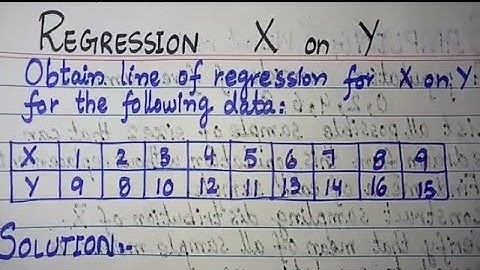 REGRESSION X on Y
Obtain line of regression for X on Y
for the following data:
X 1 2 3 4 5 6 7 8 9
Y 9 8 10 12 11 13 14 16 15
SOLUTION:-